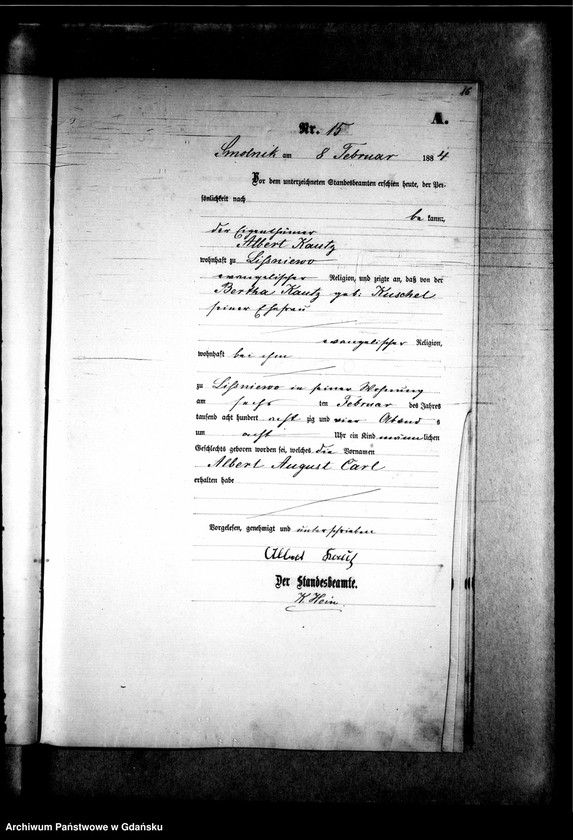 16
A.
Nr. 15
Smolnik am 8 Februar 1884
Vor dem unterzeichneten Standesbeamten erschien heute, der Per-
sönlichkeit nach
be kannt,
der Eigenthümer
Albert Kautz
wohnhaft zu Lißniewo
evangelischer Religion, und zeigte an, daß von der
Bertha Kautz geb: Kuschel
seiner Ehefrau
evangelischer Religion,
wohnhaft bei ihm
zu Lißniewo in seiner Wohnung
am sechs ten Februar des Jahres
tausend acht hundert acht zig und vier Abend s
um acht Uhr ein Kind männ lichen
Geschlechts geboren worden sei, welches die Vornamen
Albert August Carl
erhalten habe
Vorgelesen, genehmigt und unterschrieben
Albert Kautz
Der Standesbeamte.
K. Hein
Archiwum Państwowe w Gdańsku